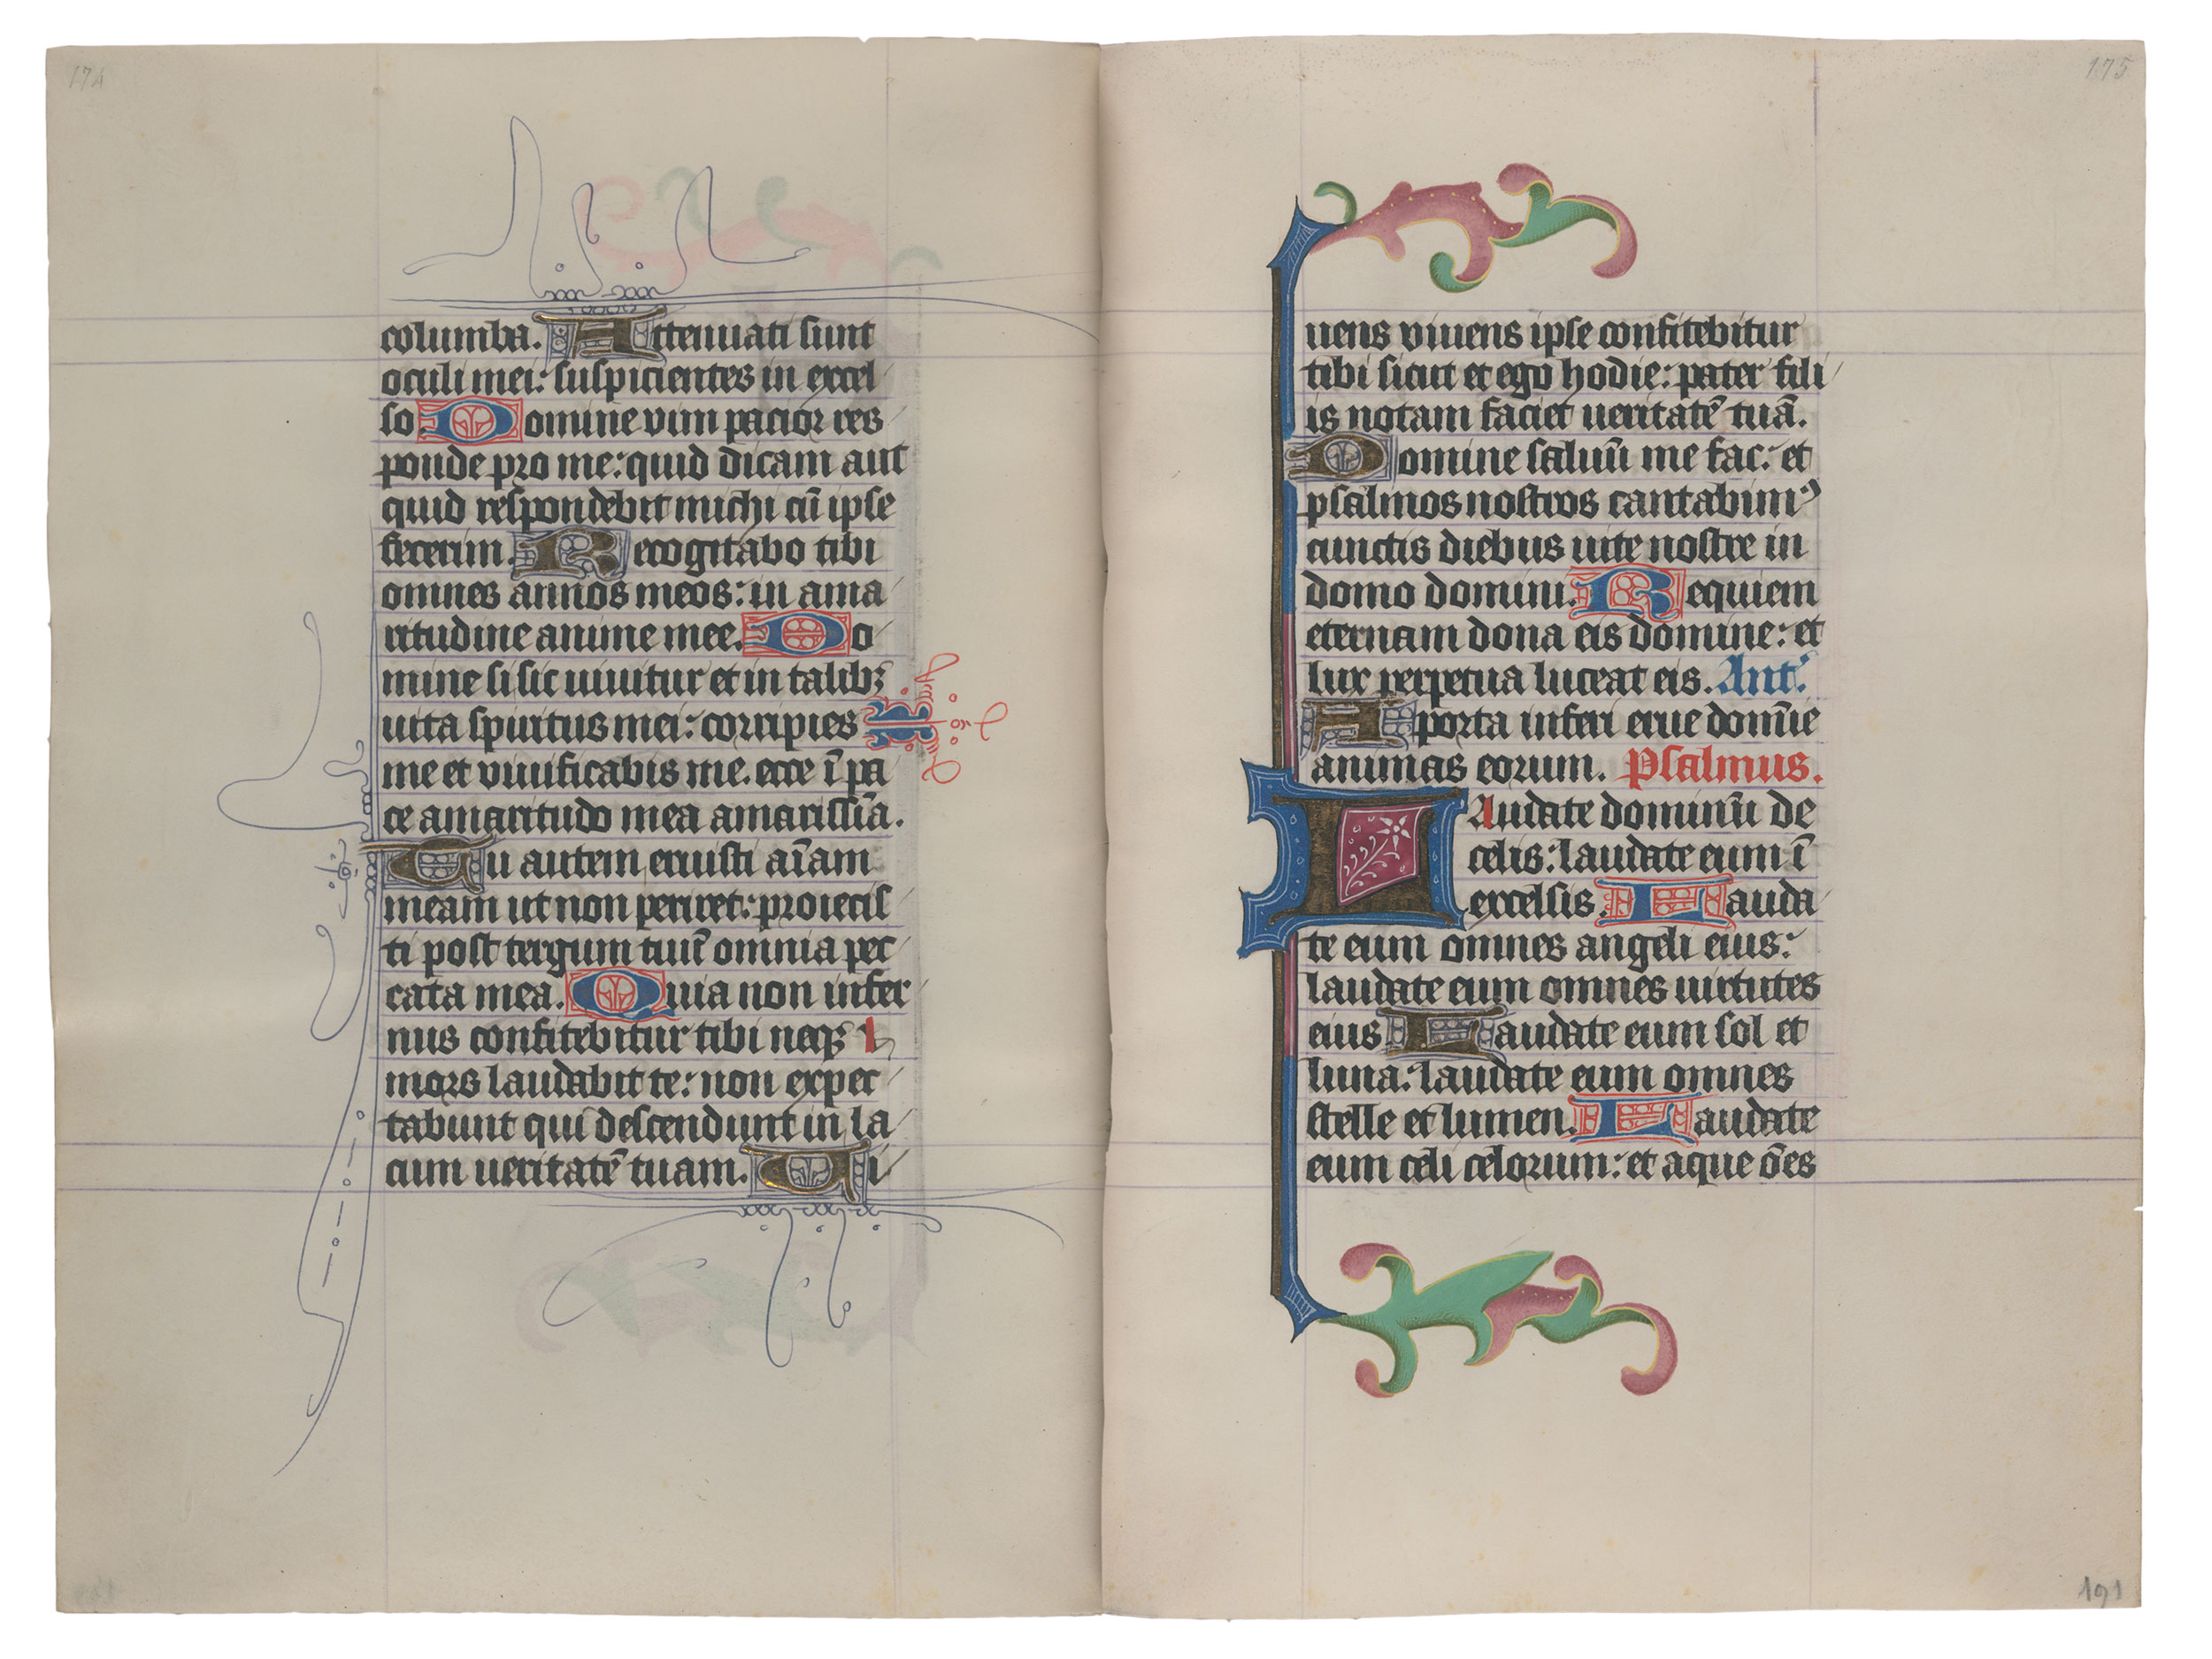 174
columba. Attenuati sunt
oculi mei: suspicientes in excel
so. Domine vim pacior res
ponde pro me: quid dicam aut
quid respondebit michi cū ipse
fecerim. Recogitabo tibi
omnes annos meos: in ama
ritudine anime mee. Do
mine si sic uiuitur et in talibꝫ
uita spiritus mei: corripies
me et viuificabis me. ecce ī pa
ce amaritudo mea amarissīa.
Tu autem eruisti aīam
meam ut non periret: proiecis
ti post tergum tuū omnia pec
cata mea. Quia non infer
nus confitebitur tibi neqꝫ
mors laudabit te: non expec
tabunt qui descendunt in la
cum ueritatē tuam. Vi
175
uens viuens ipse confitebitur
tibi sicut et ego hodie: pater fili
is notam faciet ueritatē tuā.
Domine saluū me fac: et
psalmos nostros cantabimꝰ
cunctis diebus uite nostre in
domo domini. Requiem
eternam dona eis domine: et
lux perpetua luceat eis. Ant.
A porta inferi erue domīe
animas eorum. Psalmus.
Laudate dominū de
celis: laudate eum ī
excelsis. Lauda
te eum omnes angeli eius:
laudate eum omnes uirtutes
eius Laudate eum sol et
luna: laudate eum omnes
stelle et lumen. Laudate
eum celi celorum: et aque ōes
191